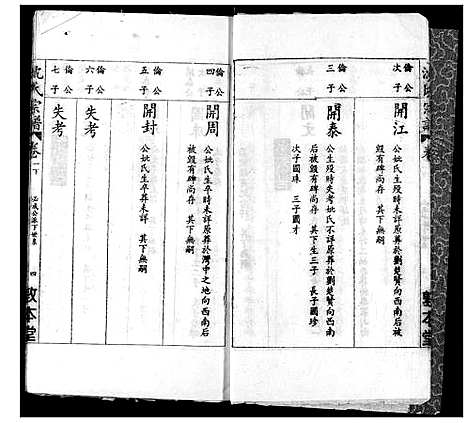 倫公
次子
開江
公妣氏生歿時未詳原葬於劉楚贊向西南后被
毀有碑尚存　其下無嗣
倫公
三子
開泰
公生歿時失考妣氏不詳原葬於劉楚贊向西南
后被毀有碑尚存　其下生三子　長子國珍
次子國珠　三子國才
敦本堂
倫公
四子
開周
公妣氏生卒時未詳原葬於灣中之地向西南后
被毀有碑尚存　其下無嗣
倫公
五子
開封
公妣氏生卒葬未詳　其下無嗣
倫公
六子
失考
倫公
七子
失考
氏宗譜
卷一下
公派下世系
四
敦本堂